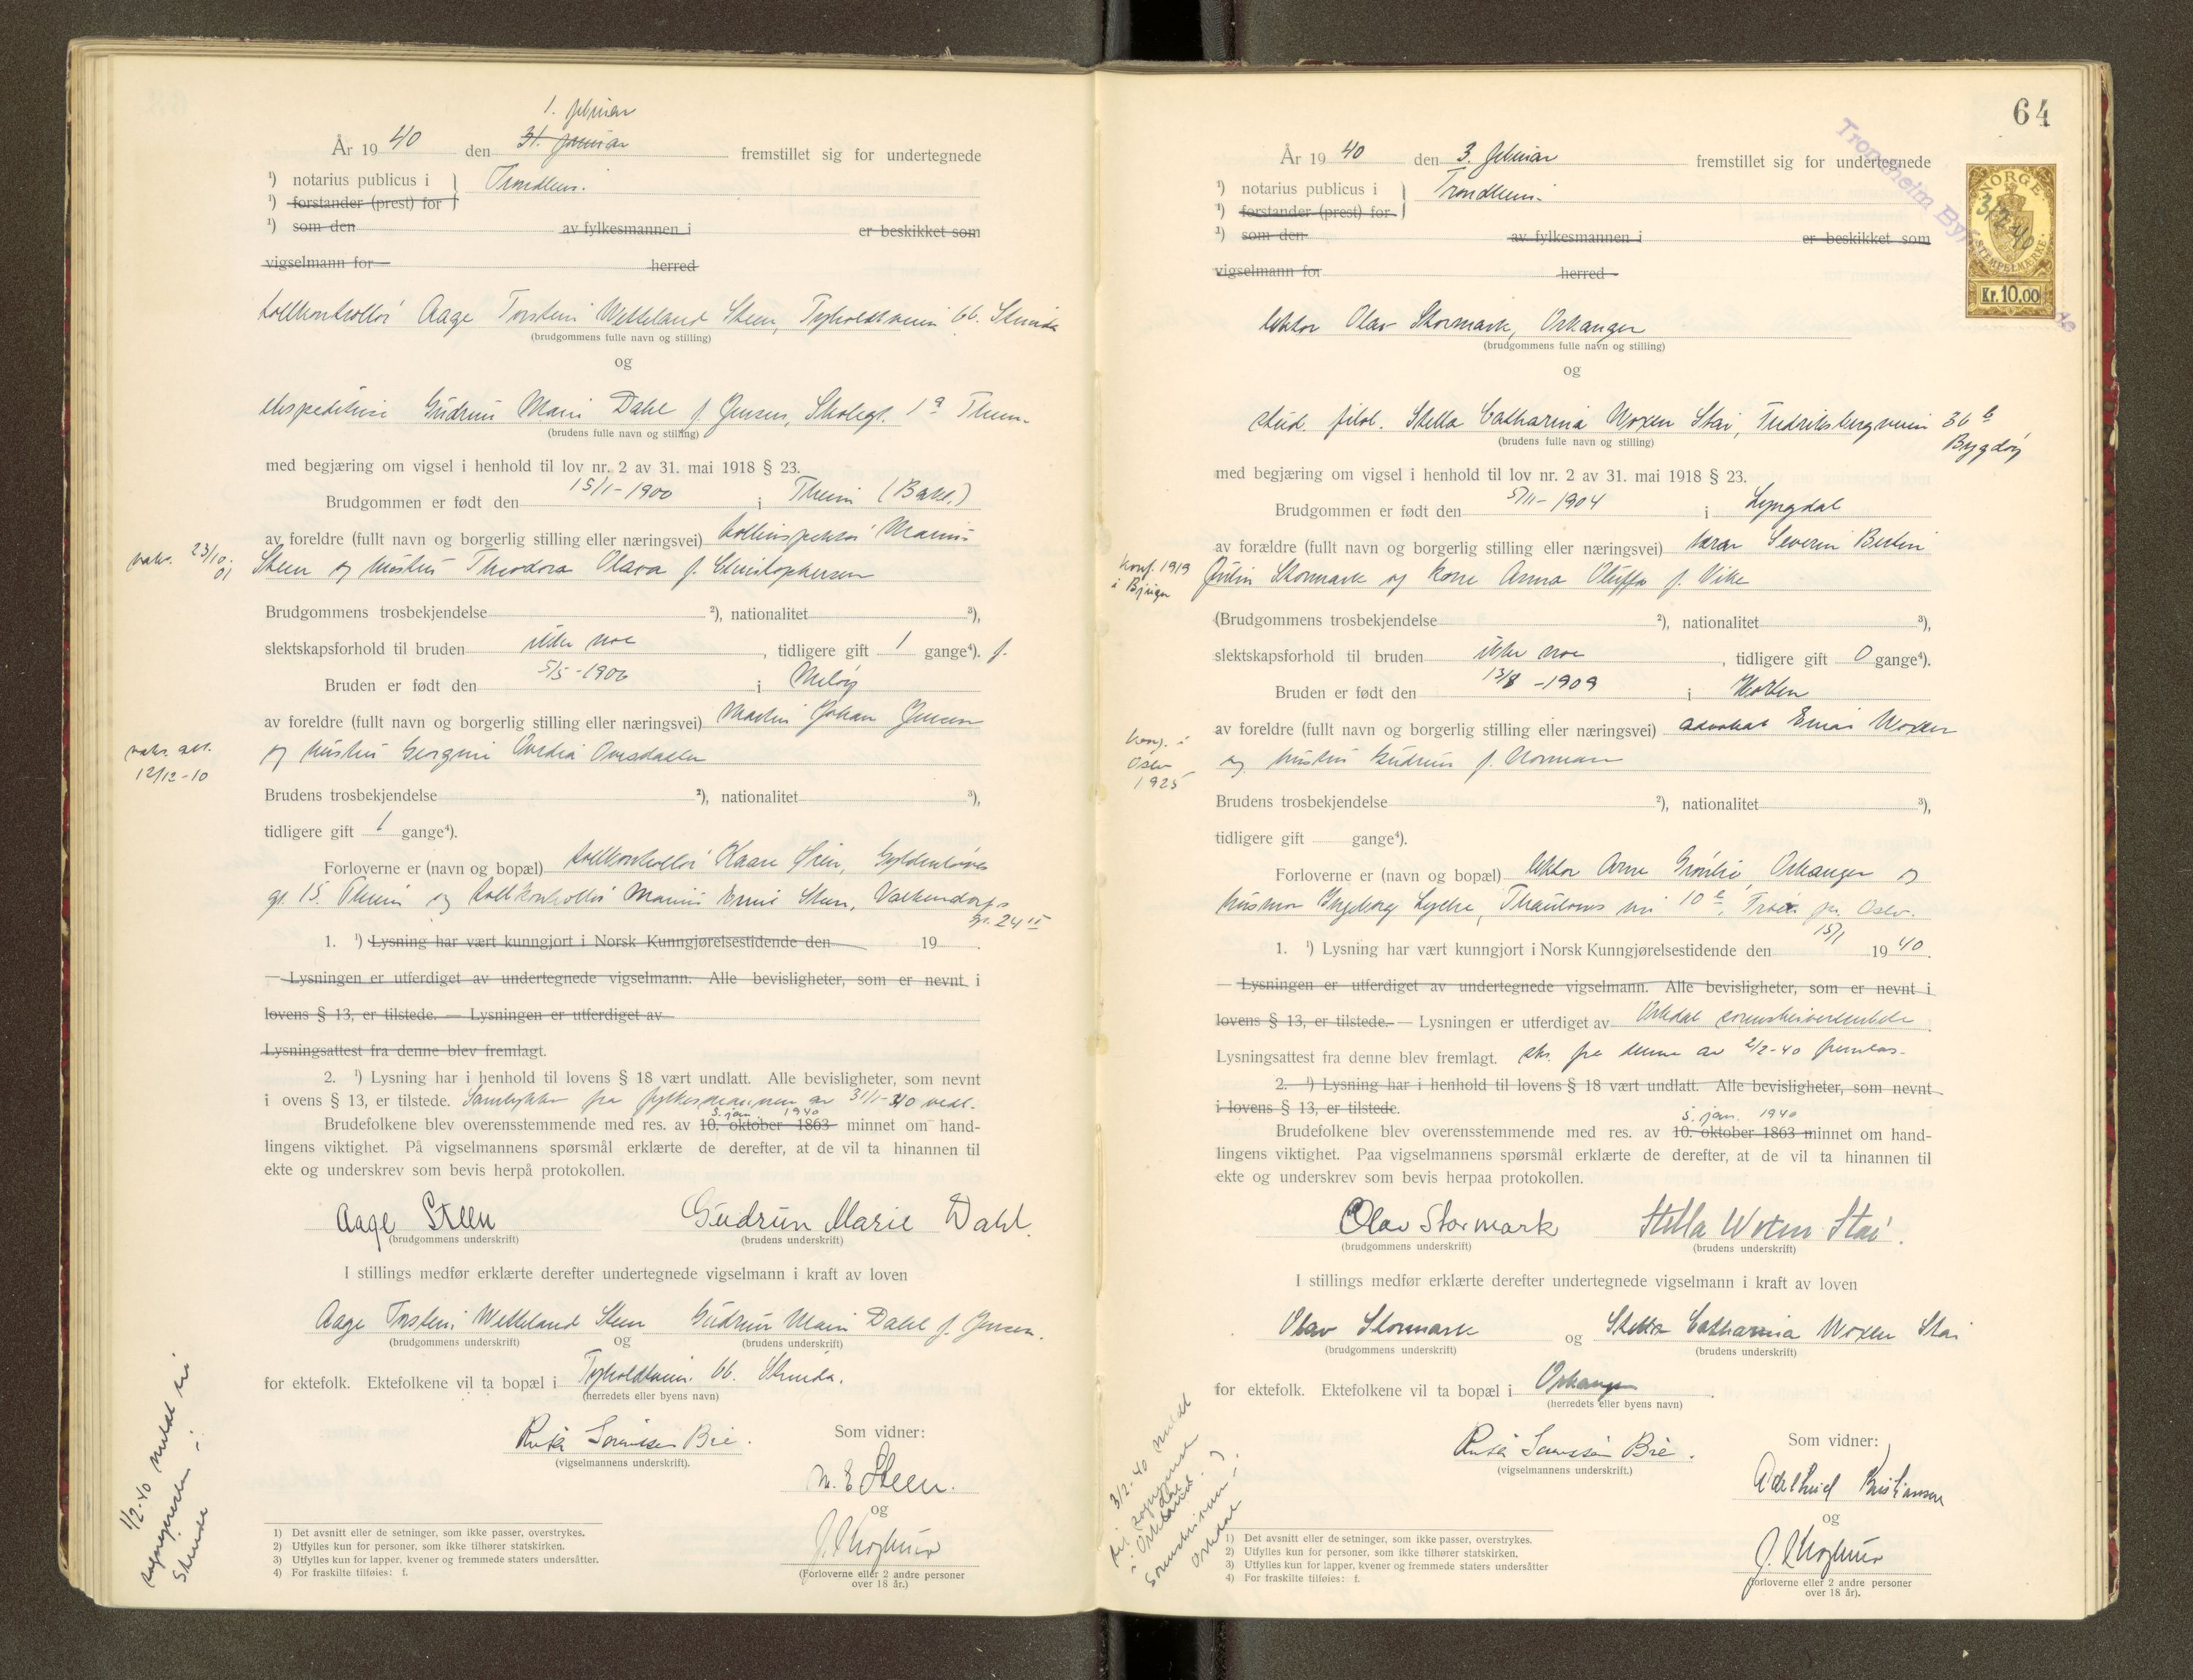 1. februar
År 19 40 den 31. januar fremstillet sig for undertegnede
¹) notarius publicus i } Trondheim.
¹) forstander (prest) for
¹) som den av fylkesmannen i er beskikket som
vigselmann for herred
tollkontrollør Aage Torstein Wetteland Steen, Tyholdtveien 66. Strinda
(brudgommens fulle navn og stilling)
og
ekspeditrise Gudrun Marie Dahl f. Jensen, Skolegt. 1a Theim.
(brudens fulle navn og stilling)
med begjæring om vigsel i henhold til lov nr. 2 av 31. mai 1918 § 23.
Brudgommen er født den 15/1-1900 i Theim (Bakl.)
av foreldre (fullt navn og borgerlig stilling eller næringsvei) tollinspektør Marius
vaks. 23/10-01
Steen og hustru Theodora Olava f. Christophersen
Brudgommens trosbekjendelse ²), nationalitet ³),
slektskapsforhold til bruden ikke noe, tidligere gift 1 gange⁴). f.
Bruden er født den 5/5-1906 i Meløy
av foreldre (fullt navn og borgerlig stilling eller næringsvei) Martin Johan Jensen
vaks. att. 12/12-10
og hustru Georgine
Brudens trosbekjendelse ²), nationalitet ³),
tidligere gift 1 gange⁴).
Forloverne er (navn og bopæl) tollkontrollør Kaare Øien, Gyldenløves
gt. 15. Theim og tollkontrollør Marius Emil Steen, Valkendorfs
gt. 24 II
1. ¹) Lysning har vært kunngjort i Norsk Kunngjørelsestidende den 19 .
— Lysningen er utferdiget av undertegnede vigselmann. Alle bevisligheter, som er nevnt i
lovens § 13, er tilstede. — Lysningen er utferdiget av
Lysningsattest fra denne blev fremlagt.
2. ¹) Lysning har i henhold til lovens § 18 vært undlatt. Alle bevisligheter, som nevnt
i ovens § 13, er tilstede. Samtykke fra fylkesmannen av 31/1-40 vedl.
5. jan. 1940
Brudefolkene blev overensstemmende med res. av 10. oktober 1863 minnet om hand-
lingens viktighet. På vigselmannens spørsmål erklærte de derefter, at de vil ta hinannen til
ekte og underskrev som bevis herpå protokollen.
Aage Steen Gudrun Marie Dahl.
(brudgommens underskrift) (brudens underskrift)
I stillings medfør erklærte derefter undertegnede vigselmann i kraft av loven
Aage Torstein Wetteland Steen og Gudrun Marie Dahl f. Jensen.
(brudgommens underskrift) (brudens underskrift)
for ektefolk. Ektefolkene vil ta bopæl i Tyholdtveien 66. Strinda.
(herredets eller byens navn)
Som vidner:
(vigselmannens underskrift).
M. E. Steen.
og
(Forloverne eller 2 andre personer
over 18 år.)
1/2-40 meldt til
sognepresten i
Strinda
1) Det avsnitt eller de setninger, som ikke passer, overstrykes.
2) Utfylles kun for personer, som ikke tilhører statskirken.
3) Utfylles kun for lapper, kvener og fremmede staters undersåtter.
4) For fraskilte tilføies: f.
64
Trondheim By
NORGE
3/2-40
STEMPELMERKE.
Kr. 10.00
År 19 40 den 3. februar fremstillet sig for undertegnede
¹) notarius publicus i } Trondheim.
¹) forstander (prest) for
¹) som den av fylkesmannen i er beskikket som
vigselmann for herred
lektor Olav Stormark, Orkanger
(brudgommens fulle navn og stilling)
og
stud. filol. Stella Catharina Woxen Stai, Fredriksbergveien 36 b
Bygdøy
(brudens fulle navn og stilling)
med begjæring om vigsel i henhold til lov nr. 2 av 31. mai 1918 § 23.
Brudgommen er født den 5/11-1904 i Lyngdal
av forældre (fullt navn og borgerlig stilling eller næringsvei) lærer Severin
Konf. 1919 i Bjugn
Stormark og kone Anna Oluffa f. Vike
(Brudgommens trosbekjendelse ²), nationalitet ³),
slektskapsforhold til bruden ikke noe, tidligere gift 0 gange⁴).
Bruden er født den 13/8-1909 i Horten
av foreldre (fullt navn og borgerlig stilling eller næringsvei) advokat Einar Woxen
Konf. i Oslo 1925
og hustru Gudrun f. Norman
Brudens trosbekjendelse ²), nationalitet ³),
tidligere gift gange⁴).
Forloverne er (navn og bopæl) lektor Arne Grønlie, Orkanger og
husmor Ingeborg Lycke, Thaulows vei 10 b, pr. Oslo.
1. ¹) Lysning har vært kunngjort i Norsk Kunngjørelsestidende den 15/1 19 40.
— Lysningen er utferdiget av undertegnede vigselmann. Alle bevisligheter, som er nevnt i
lovens § 13, er tilstede. — Lysningen er utferdiget av Orkdal sorenskriverembede
Lysningsattest fra denne blev fremlagt. skr. fra denne av 2/2-40 fremlas.
2. ¹) Lysning har i henhold til lovens § 18 vært undlatt. Alle bevisligheter, som nevnt
i lovens § 13, er tilstede.
5. jan. 1940
Brudefolkene blev overensstemmende med res. av 10. oktober 1863 minnet om hand-
lingens viktighet. Paa vigselmannens spørsmål erklærte de derefter, at de vil ta hinannen til
ekte og underskrev som bevis herpaa protokollen.
Olav Stormark Stella Woxen Stai.
(brudgommens underskrift) (brudens underskrift)
I stillings medfør erklærte derefter undertegnede vigselmann i kraft av loven
Olav Stormark og Stella Catharina Woxen Stai
(brudgommens underskrift) (brudens underskrift)
for ektefolk. Ektefolkene vil ta bopæl i Orkanger.
(herredets eller byens navn)
Som vidner:
(vigselmannens underskrift.)
Adelheid Kristiansen
og
(forloverne eller 2 andre personer
over 18 år).
3/2-40 meldt
til sognepresten
i Orkdal
Sorenskriveren i
Orkdal
1) Det avsnitt eller de setninger, som ikke passer, overstrykes.
2) Utfylles kun for personer, som ikke tilhører statskirken.
3) Utfylles kun for lapper, kvener og fremmede staters undersåtter
4) For fraskilte tilføies: f.